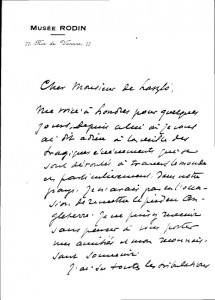 MUSÉE RODIN
77, Rue de Varenne, 77
Cher Monsieur de Laszlo,
Me voici à Londres pour quelques
jours, depuis celui où je vous
ai dit adieu à la veille des
tragiques événements qui se
sont déroulés à travers le monde
et particulièrement dans notre
pays. Je n'avais pas eu l'occa-
sion de remettre le pied en An-
gleterre. Je ne puis y revenir
sans penser à vous porter
mes amitiés et mon reconnais-
sant souvenir
J'ai su toutes les tribulations